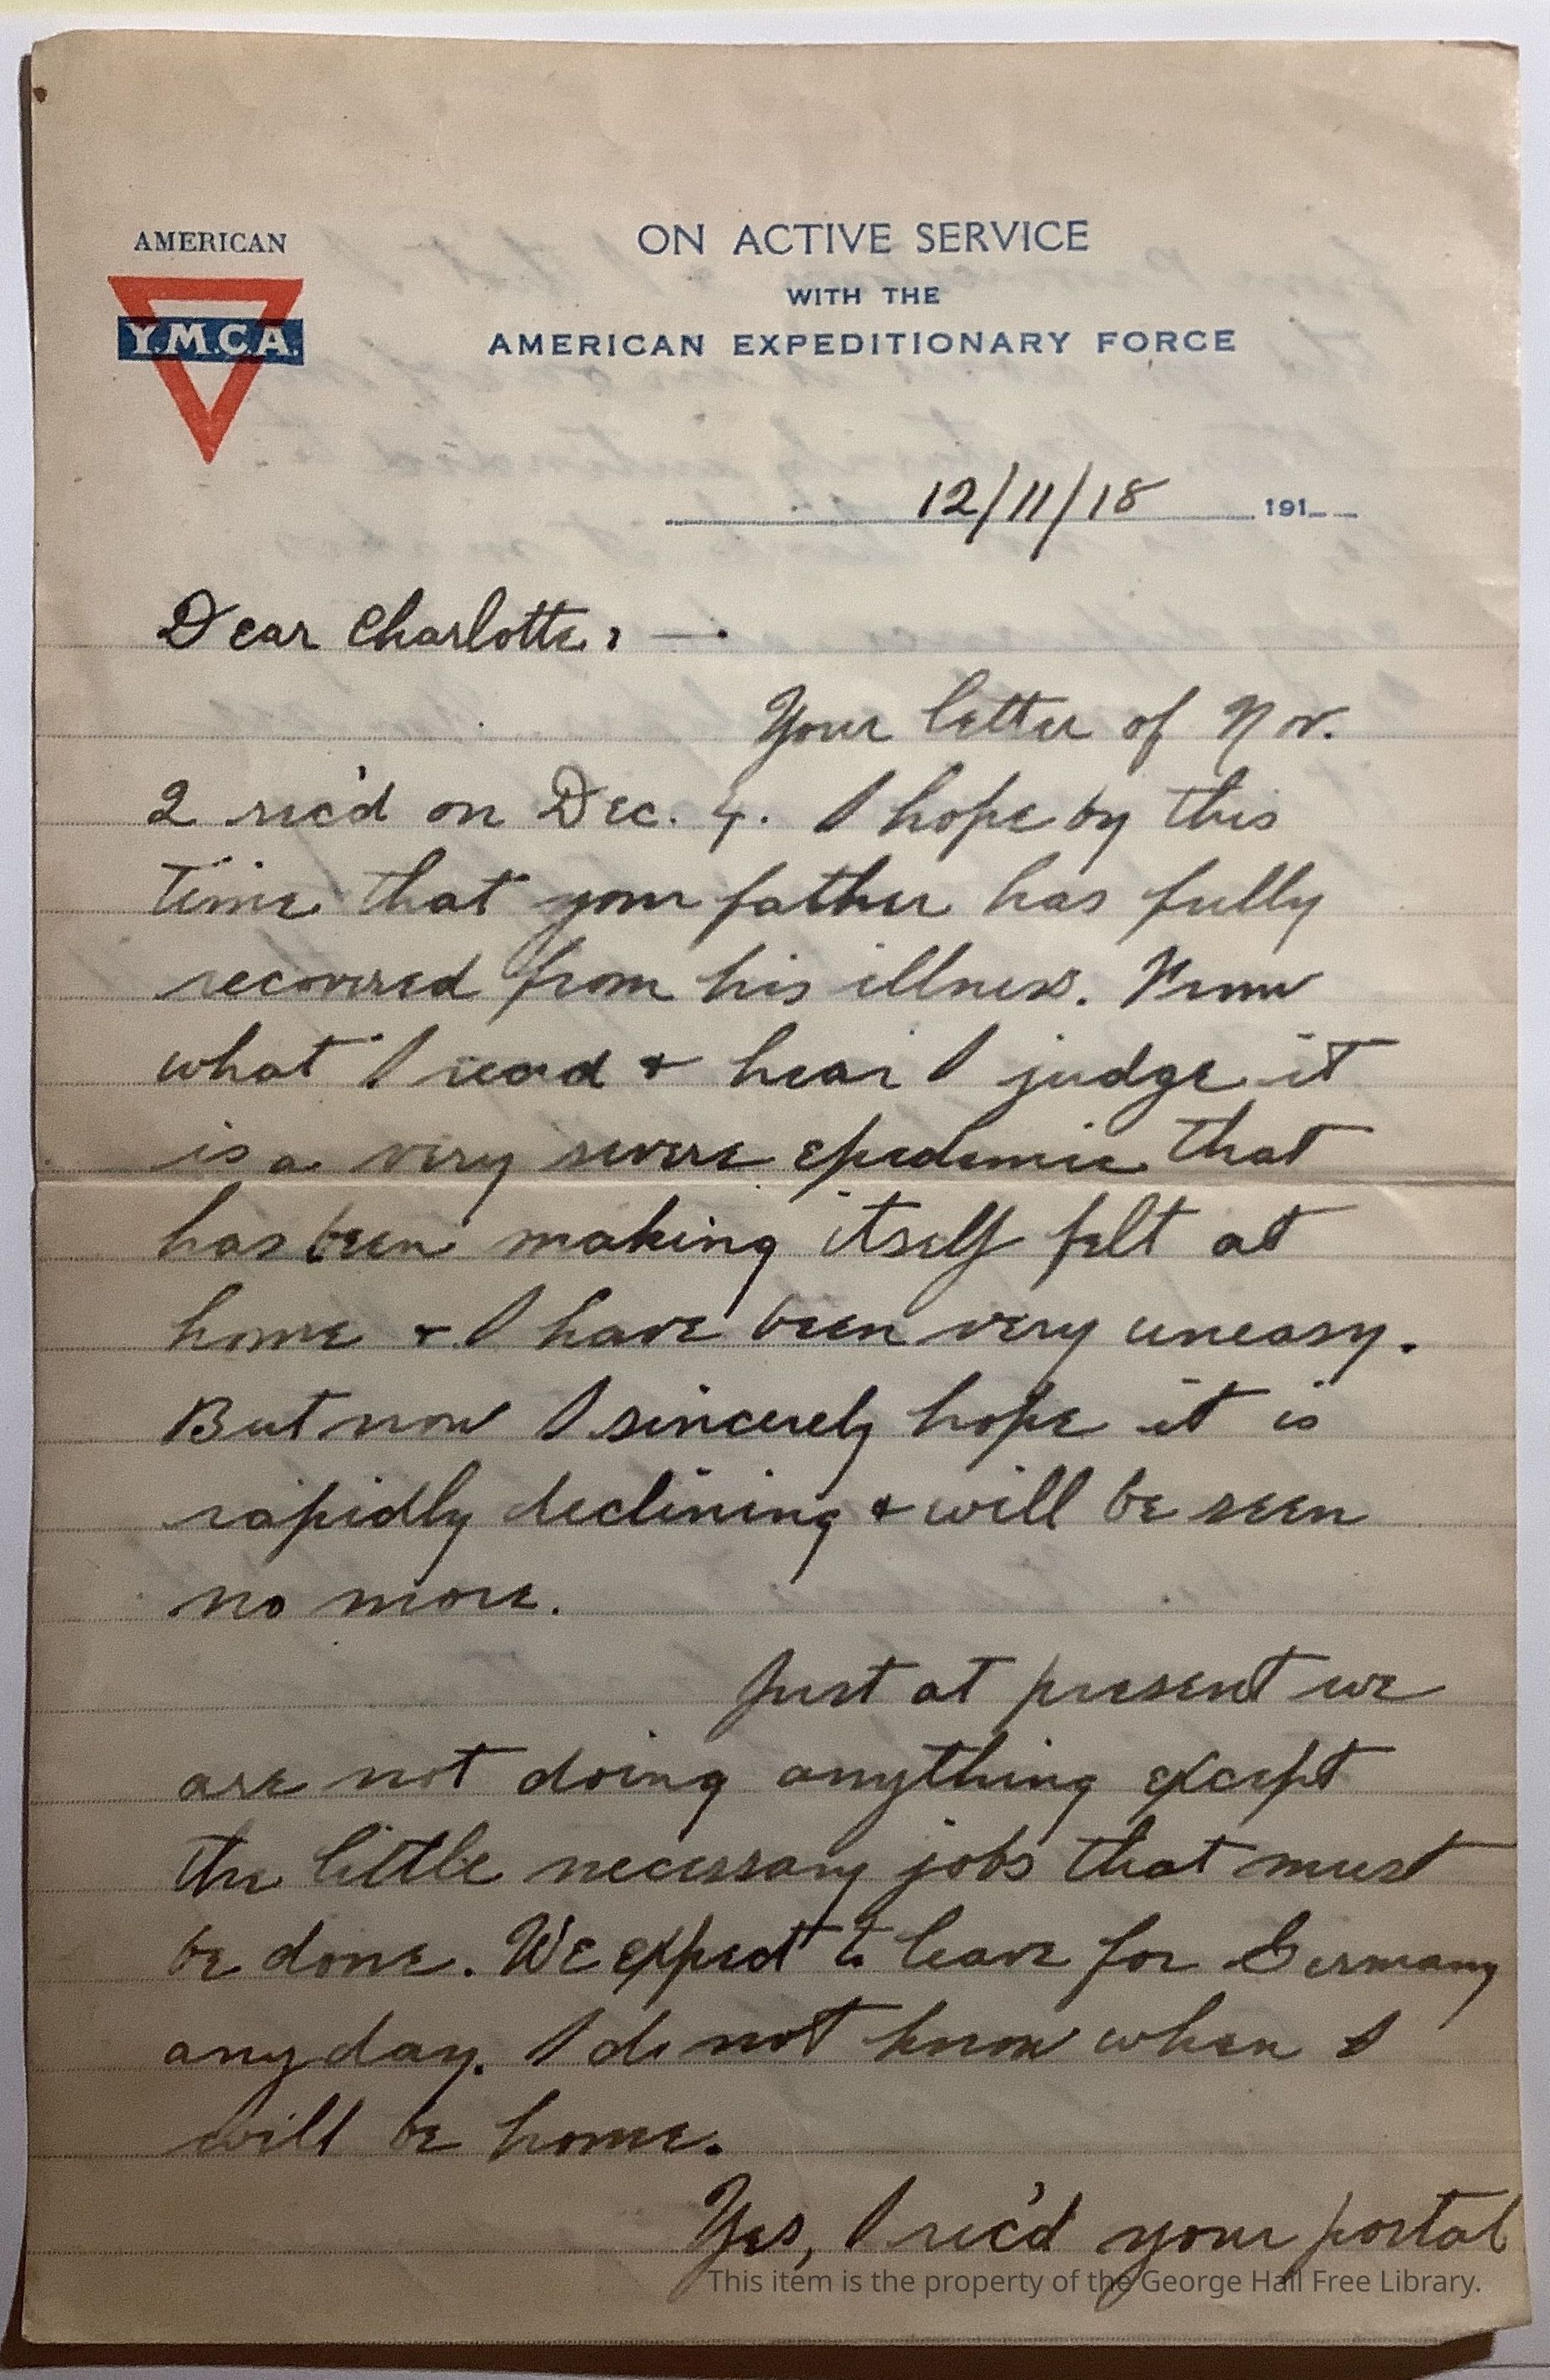 AMERICAN
Y.M.C.A.
ON ACTIVE SERVICE
WITH THE
AMERICAN EXPEDITIONARY FORCE
12/11/18 191
Dear Charlotte, —.
Your letter of Nov.
2 rec'd on Dec. 4. I hope by this
time that your father has fully
recovered from his illness. From
what I read & hear I judge it
is a very severe epedemic that
has been making itself felt at
home & I have been very uneasy.
But now I sincerely hope it is
rapidly declining & will be seen
no more.
Just at present we
are not doing anything except
the little necessary jobs that must
be done. We expect to leave for Germany
any day. I do not know when I
will be home.
Yes, I rec'd your postal
This item is the property of the George Hail Free Library.